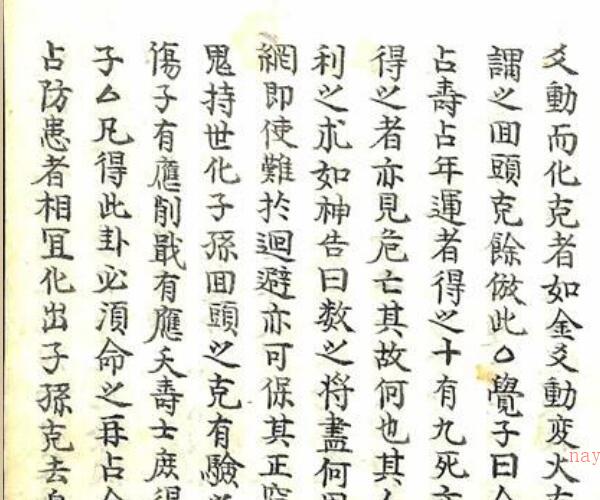 爻動而化克者如金爻動変火
謂之囬頭克餘倣此○覺子曰
占壽占年運者得之十有九死
得之者亦見危亡其故何也其
利之求如神告曰数之将盡何
網即使難於迴避亦可保其正
鬼持世化子孫囬頭之克有驗
傷子有應削戢有應夭壽士庶得
子厶凡得此卦必湏命之再占
占防患者相冝化出子孫克去
nay